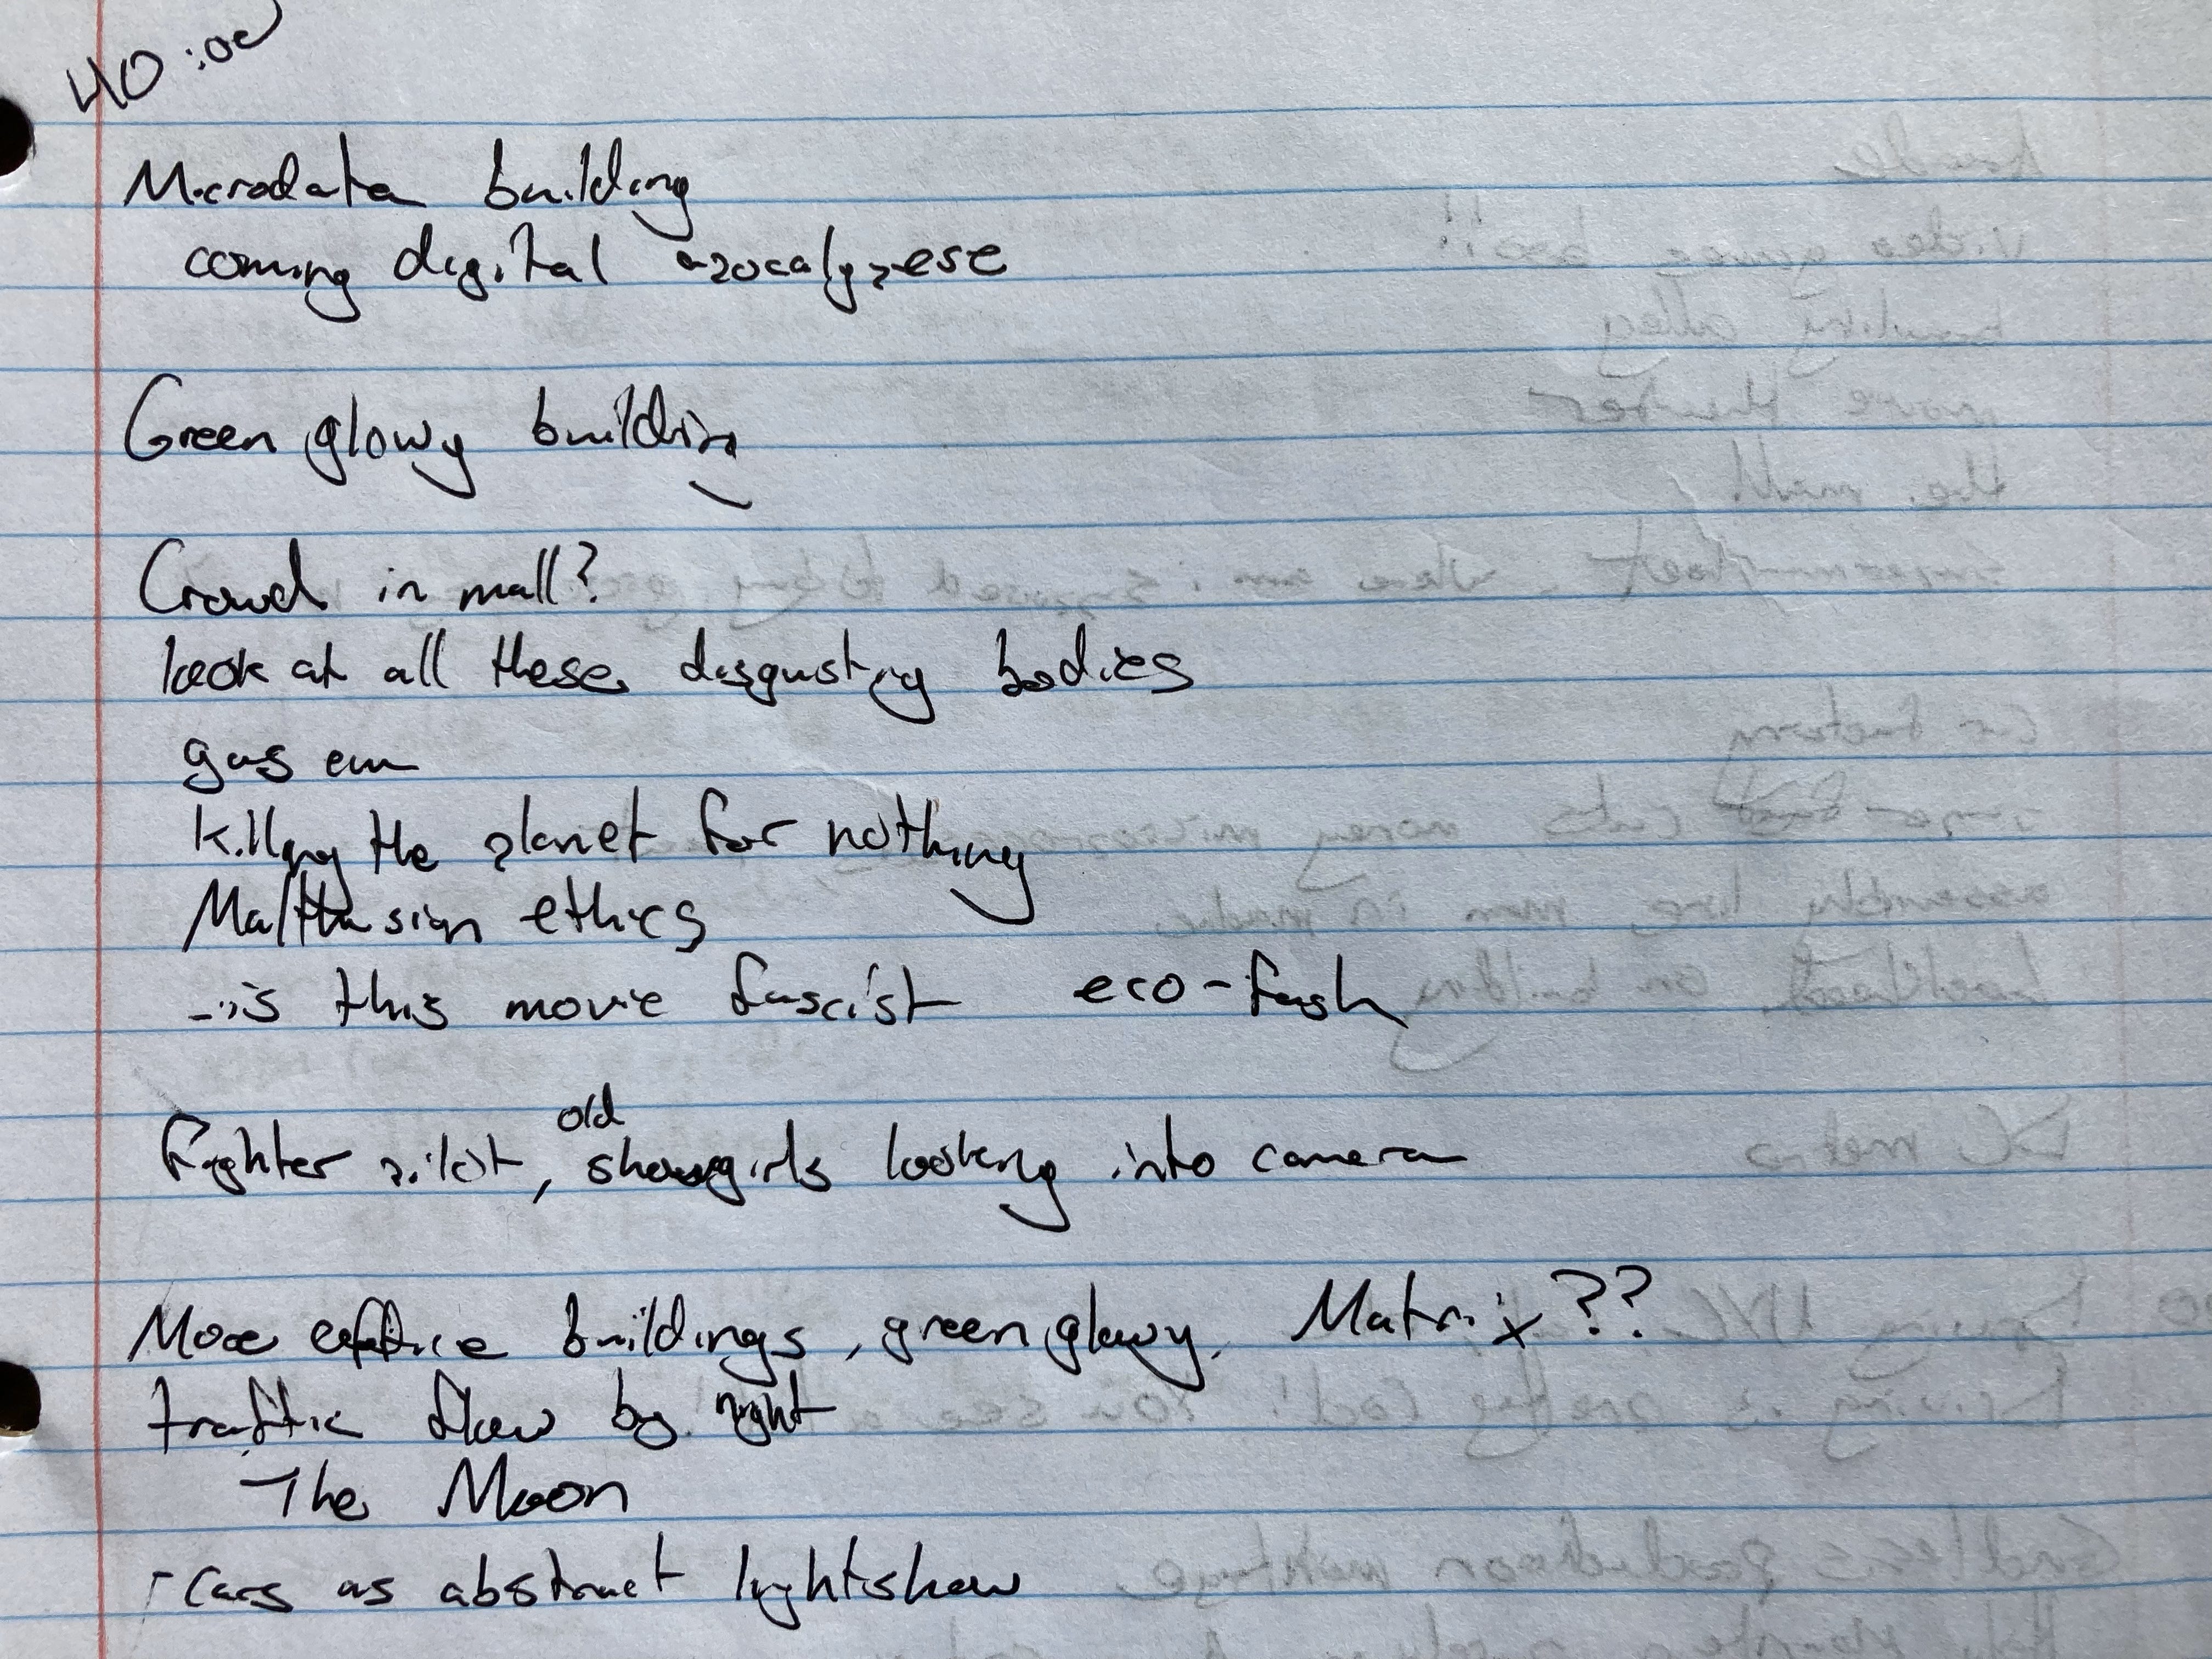 40:00
Microdata building
coming digital apocalypese
Green glowy building
Crowd in mall?
look at all these disgusting bodies
gas em
killing the planet for nothing
Malthusian ethics
- is this movie fascist eco-fash
old
Fighter pilot, showgirls looking into camera
More office buildings, green glowy, Matrix??
traffic flow by night
The Moon
- cars as abstract lightshow